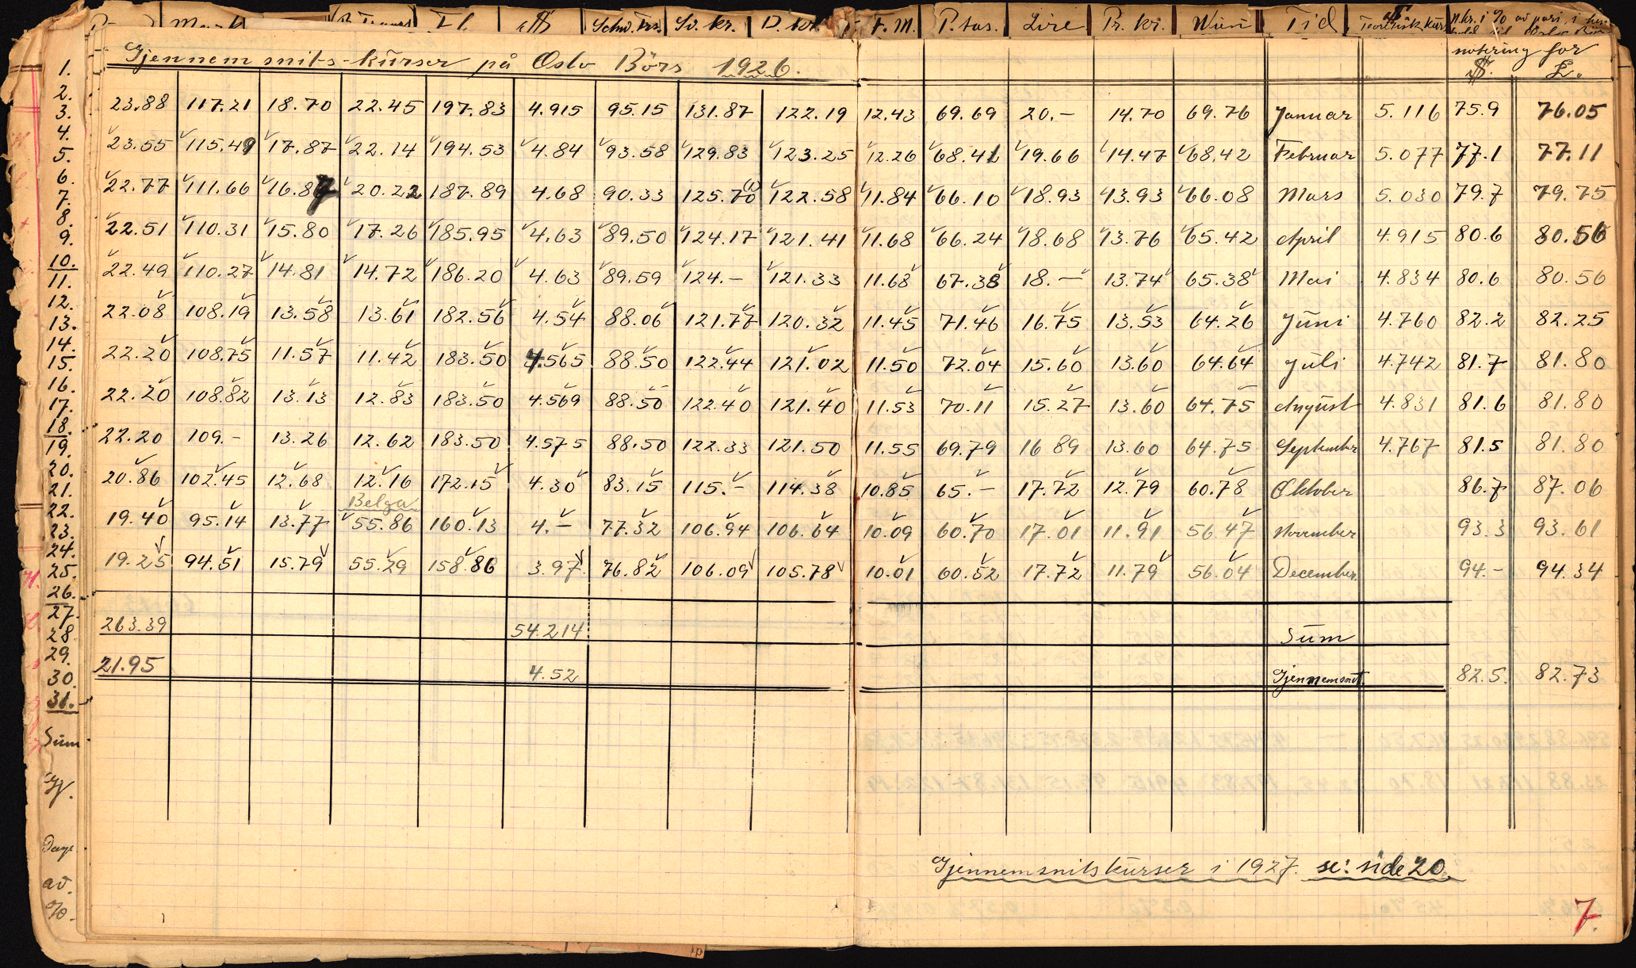 Mark Fl. $ Schw. frs. Sv. kr. D. kr. F. M. P.tas. Lire Pr. kr. Wien Tid Teoretisk kurs N.kr. i % av pari, i hen-
Gjennemsnits-kurser på Oslo Börs 1926. notering for
$. £.
1.
2.
3. 23.88 117.21 18.70 22.45 197.83 4.915 95.15 131.87 122.19 12.43 69.69 20.- 14.70 69.76 Januar 5.116 75.9 76.05
4.
5. 23.55 115.49 17.87 22.14 194.53 4.84 93.58 129.83 123.25 12.26 68.41 19.66 14.47 68.42 Februar 5.077 77.1 77.11
6.
7. 22.77 111.66 16.87 20.22 187.89 4.68 90.33 125.70 122.58 11.84 66.10 18.93 13.93 66.08 Mars 5.030 79.7 79.75
8.
9. 22.51 110.31 15.80 17.26 185.95 4.63 89.50 124.17 121.41 11.68 66.24 18.68 13.76 65.42 April 4.915 80.6 80.56
10.
11. 22.49 110.27 14.81 14.72 186.20 4.63 89.59 124.- 121.33 11.68 67.38 18.- 13.74 65.38 Mai 4.834 80.6 80.56
12.
13. 22.08 108.19 13.58 13.61 182.56 4.54 88.06 121.77 120.32 11.45 71.46 16.75 13.53 64.26 Juni 4.760 82.2 82.25
14.
15. 22.20 108.75 11.57 11.42 183.50 4.565 88.50 122.44 121.02 11.50 72.04 15.60 13.60 64.64 Juli 4.742 81.7 81.80
16.
17. 22.20 108.82 13.13 12.83 183.50 4.569 88.50 122.40 121.40 11.53 70.11 15.27 13.60 64.75 August 4.831 81.6 81.80
18.
19. 22.20 109.- 13.26 12.62 183.50 4.575 88.50 122.33 121.50 11.55 69.79 16 89 13.60 64.75 September 4.767 81.5 81.80
20.
21. 20.86 102.45 12.68 12.16 172.15 4.30 83.15 115.- 114.38 10.85 65.- 17.72 12.79 60.78 Oktober 86.7 87.06
22. Belga
23. 19.40 95.14 13.77 55.86 160.13 4.- 77.32 106.94 106.64 10.09 60.70 17.01 11.91 56.47 November 93.3 93.61
24.
25. 19.25 94.51 15.79 55.29 158.86 3.97 76.82 106.09 105.78 10.01 60.52 17.72 11.79 56.04 December 94.- 94.34
26.
27.
28. 263.39 54.214 Sum
29.
30. 21.95 4.52 Gjennemsnit. 82.5. 82.73
31.
Sum
Gj.
Dage
av.
%.
Gjennemsnitskurser i 1927. se: side 20.
7.